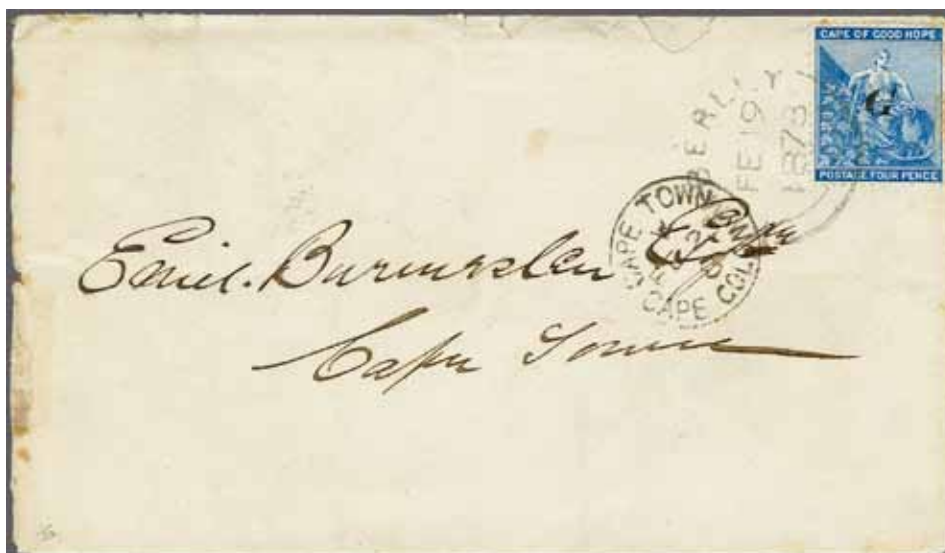 CAPE OF GOOD HOPE
G
POSTAGE FOUR PENCE
BERL
FE 19
1878
CAPE TOWN
CAPE COL
Emil.
Cape Town